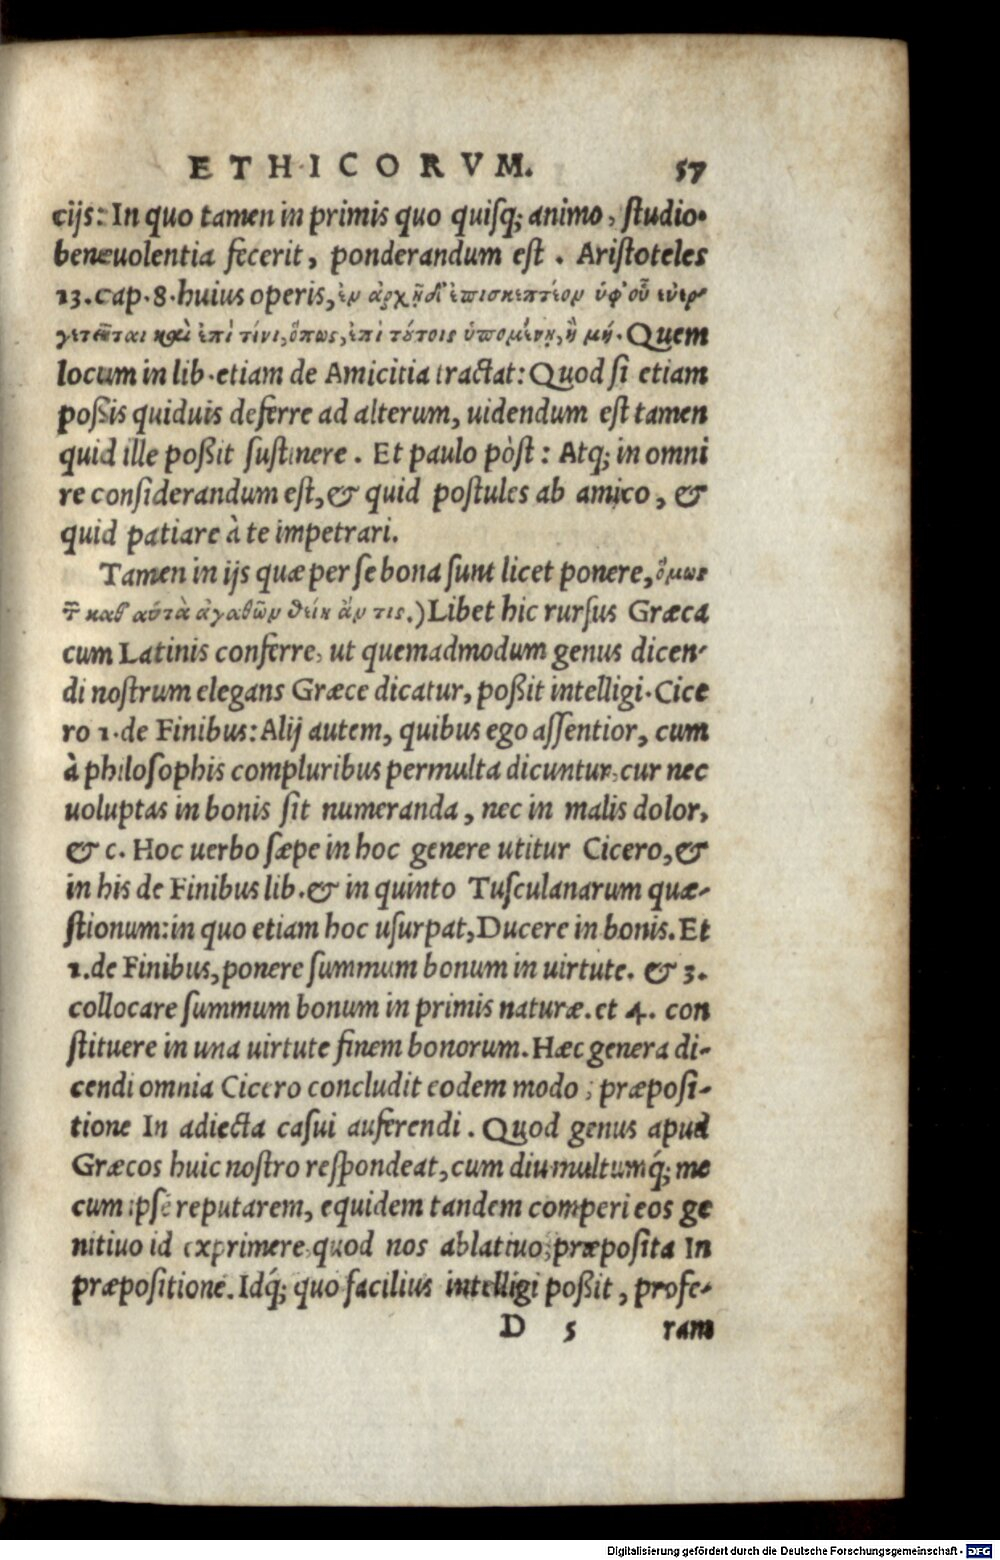 ETHICORVM. 57
cijs: In quo tamen in primis quo quisq; animo, studio.
beneuolentia fecerit, ponderandum est. Aristoteles
13. cap. 8. huius operis, ἐν ἀρχῇ δ' ἐπισκεπτέον ὑφ' οὗ εὐερ-
γετεῖται καὶ ἐπὶ τίνι, ὅπως, ἐπὶ τούτοις ὑπομένῃ, ἢ μή. Quem
locum in lib. etiam de Amicitia tractat: Quod si etiam
poßis quiduis deferre ad alterum, uidendum est tamen
quid ille poßit sustinere. Et paulo pòst: Atq; in omni
re considerandum est, & quid postules ab amico, &
quid patiare à te impetrari.
Tamen in ijs quæ per se bona sunt licet ponere, ὅμως
τ̃ καθ' αὑτὰ ἀγαθῶν θείη ἄν τις.) Libet hic rursus Græca
cum Latinis conferre, ut quemadmodum genus dicen-
di nostrum elegans Græce dicatur, poßit intelligi. Cice
ro 1. de Finibus: Alij autem, quibus ego assentior, cum
à philosophis compluribus permulta dicuntur, cur nec
uoluptas in bonis sit numeranda, nec in malis dolor,
& c. Hoc uerbo sæpe in hoc genere utitur Cicero, &
in his de Finibus lib. & in quinto Tusculanarum quæ-
stionum: in quo etiam hoc usurpat, Ducere in bonis. Et
1. de Finibus, ponere summum bonum in uirtute. & 3.
collocare summum bonum in primis naturæ. et 4. con
stituere in una uirtute finem bonorum. Hæc genera di-
cendi omnia Cicero concludit eodem modo, præposi-
tione In adiecta casui auferendi. Quod genus apud
Græcos huic nostro respondeat, cum diu multumq́; me
cum ipse reputarem, equidem tandem comperi eos ge
nitiuo id exprimere quod nos ablatiuo, præposita In
præpositione. Idq́; quo facilius intelligi poßit, profe-
D 5 ram
Digitalisierung gefördert durch die Deutsche Forschungsgemeinschaft - DFG